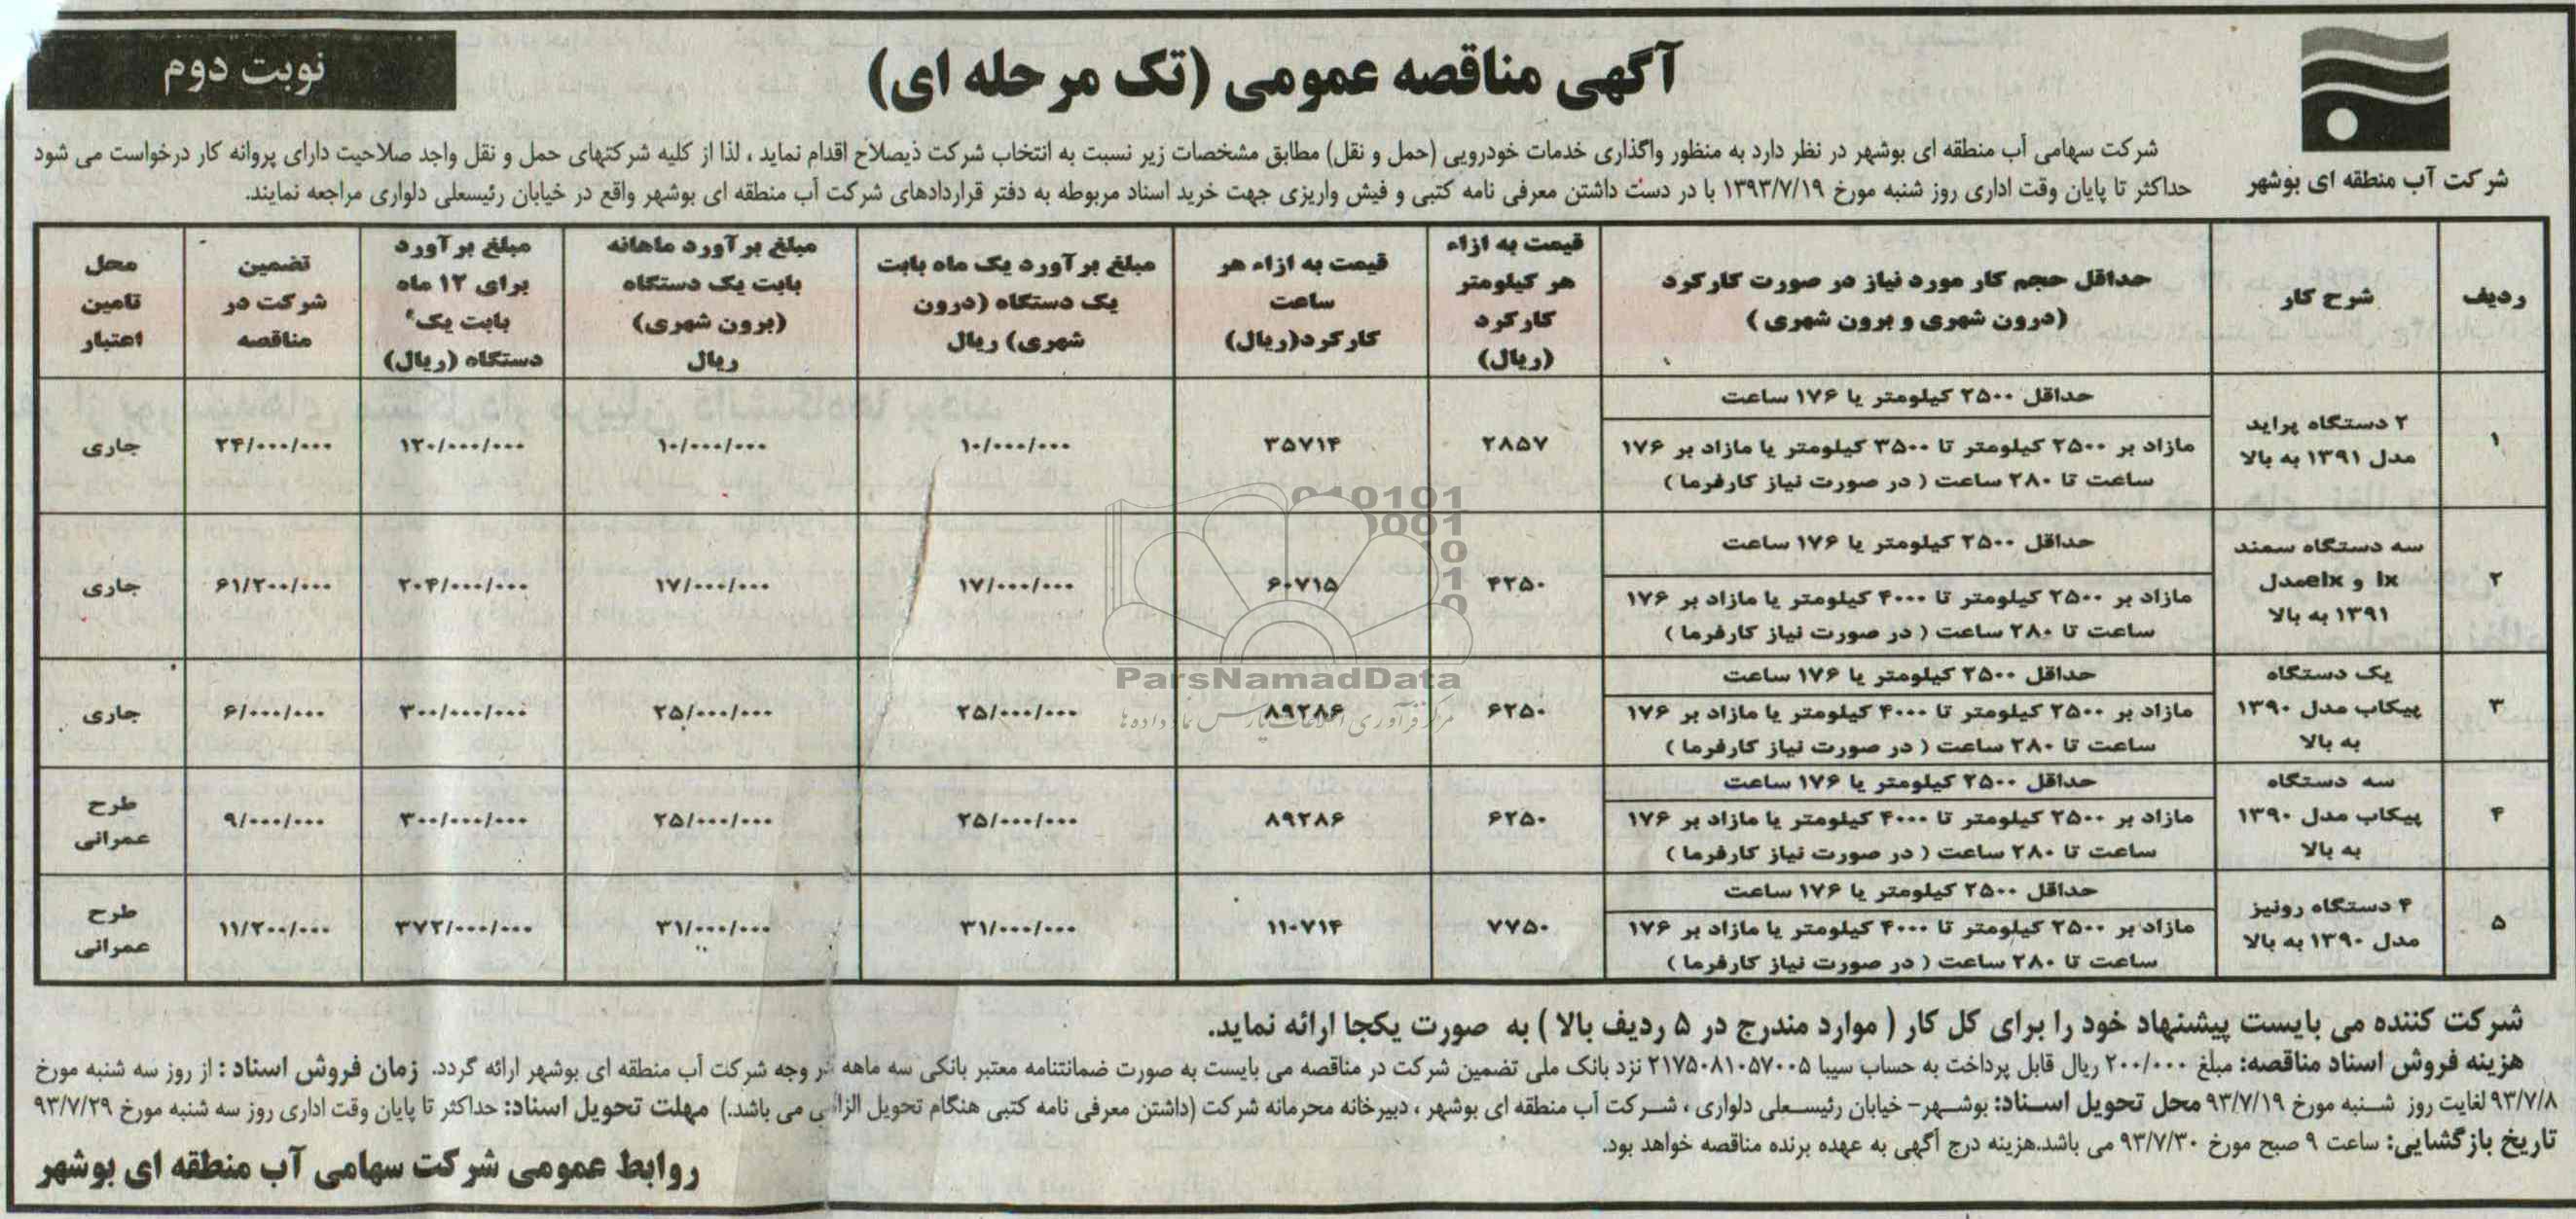 نوبت دوم
آگهی مناقصه عمومی (تک مرحله ای)
شرکت آب منطقه ای بوشهر
شرکت سهامی آب منطقه ای بوشهر در نظر دارد به منظور واگذاری خدمات خودرویی (حمل و نقل) مطابق مشخصات زیر نسبت به انتخاب شرکت ذیصلاح اقدام نماید ، لذا از کلیه شرکتهای حمل و نقل واجد صلاحیت دارای پروانه کار درخواست می شود
حداکثر تا پایان وقت اداری روز شنبه مورخ ۱۳۹۳/۷/۱۹ با در دست داشتن معرفی نامه کتبی و فیش واریزی جهت خرید اسناد مربوطه به دفتر قراردادهای شرکت آب منطقه ای بوشهر واقع در خیابان رئیسعلی دلواری مراجعه نمایند.
ردیف
شرح کار
حداقل حجم کار مورد نیاز در صورت کارکرد
(درون شهری و برون شهری )
قیمت به ازاء
هر کیلومتر
کارکرد
(ریال)
قیمت به ازاء هر
ساعت
کارکرد(ریال)
مبلغ برآورد یک ماه بابت
یک دستگاه (درون
شهری) ریال
مبلغ برآورد ماهانه
بابت یک دستگاه
(برون شهری)
ریال
مبلغ برآورد
برای ۱۲ ماه
بابت یک
دستگاه (ریال)
تضمین
شرکت در
مناقصه
محل
تامین
اعتبار
۱
۲ دستگاه پراید
مدل ۱۳۹۱ به بالا
حداقل ۲۵۰۰ کیلومتر یا ۱۷۶ ساعت
مازاد بر ۲۵۰۰ کیلومتر تا ۳۵۰۰ کیلومتر یا مازاد بر ۱۷۶
ساعت تا ۲۸۰ ساعت ( در صورت نیاز کارفرما )
۲۸۵۷
۳۵۷۱۴
۱۰/۰۰۰/۰۰۰
۱۰/۰۰۰/۰۰۰
۱۲۰/۰۰۰/۰۰۰
۲۴/۰۰۰/۰۰۰
جاری
۲
سه دستگاه سمند
lx و elxمدل
۱۳۹۱ به بالا
حداقل ۲۵۰۰ کیلومتر یا ۱۷۶ ساعت
مازاد بر ۲۵۰۰ کیلومتر تا ۴۰۰۰ کیلومتر یا مازاد بر ۱۷۶
ساعت تا ۲۸۰ ساعت ( در صورت نیاز کارفرما )
۴۲۵۰
۶۰۷۱۵
۱۷/۰۰۰/۰۰۰
۱۷/۰۰۰/۰۰۰
۲۰۴/۰۰۰/۰۰۰
۶۱/۲۰۰/۰۰۰
جاری
۳
یک دستگاه
پیکاب مدل ۱۳۹۰
به بالا
حداقل ۲۵۰۰ کیلومتر یا ۱۷۶ ساعت
مازاد بر ۲۵۰۰ کیلومتر تا ۴۰۰۰ کیلومتر یا مازاد بر ۱۷۶
ساعت تا ۲۸۰ ساعت ( در صورت نیاز کارفرما )
۶۲۵۰
۸۹۲۸۶
۲۵/۰۰۰/۰۰۰
۲۵/۰۰۰/۰۰۰
۳۰۰/۰۰۰/۰۰۰
۶/۰۰۰/۰۰۰
جاری
۴
سه دستگاه
پیکاب مدل ۱۳۹۰
به بالا
حداقل ۲۵۰۰ کیلومتر یا ۱۷۶ ساعت
مازاد بر ۲۵۰۰ کیلومتر تا ۴۰۰۰ کیلومتر یا مازاد بر ۱۷۶
ساعت تا ۲۸۰ ساعت ( در صورت نیاز کارفرما )
۶۲۵۰
۸۹۲۸۶
۲۵/۰۰۰/۰۰۰
۲۵/۰۰۰/۰۰۰
۳۰۰/۰۰۰/۰۰۰
۹/۰۰۰/۰۰۰
طرح
عمرانی
۵
۴ دستگاه رونیز
مدل ۱۳۹۰ به بالا
حداقل ۲۵۰۰ کیلومتر یا ۱۷۶ ساعت
مازاد بر ۲۵۰۰ کیلومتر تا ۴۰۰۰ کیلومتر یا مازاد بر ۱۷۶
ساعت تا ۲۸۰ ساعت ( در صورت نیاز کارفرما )
۷۷۵۰
۱۱۰۷۱۴
۳۱/۰۰۰/۰۰۰
۳۱/۰۰۰/۰۰۰
۳۷۲/۰۰۰/۰۰۰
۱۱/۲۰۰/۰۰۰
طرح
عمرانی
ParsNamadData
مرکز فرآوری اطلاعات پارس نماد داده ها
شرکت کننده می بایست پیشنهاد خود را برای کل کار ( موارد مندرج در ۵ ردیف بالا ) به صورت یکجا ارائه نماید.
هزینه فروش اسناد مناقصه: مبلغ ۲۰۰/۰۰۰ ریال قابل پرداخت به حساب سیبا ۲۱۷۵۰۸۱۰۵۷۰۰۵ نزد بانک ملی تضمین شرکت در مناقصه می بایست به صورت ضمانتنامه معتبر بانکی سه ماهه در وجه شرکت آب منطقه ای بوشهر ارائه گردد. زمان فروش اسناد : از روز سه شنبه مورخ
۹۳/۷/۸ لغایت روز شنبه مورخ ۹۳/۷/۱۹ محل تحویل اسناد: بوشهر- خیابان رئیسعلی دلواری ، شرکت آب منطقه ای بوشهر ، دبیرخانه محرمانه شرکت (داشتن معرفی نامه کتبی هنگام تحویل الزامی می باشد.) مهلت تحویل اسناد: حداکثر تا پایان وقت اداری روز سه شنبه مورخ ۹۳/۷/۲۹
تاریخ بازگشایی: ساعت ۹ صبح مورخ ۹۳/۷/۳۰ می باشد.هزینه درج آگهی به عهده برنده مناقصه خواهد بود.
روابط عمومی شرکت سهامی آب منطقه ای بوشهر